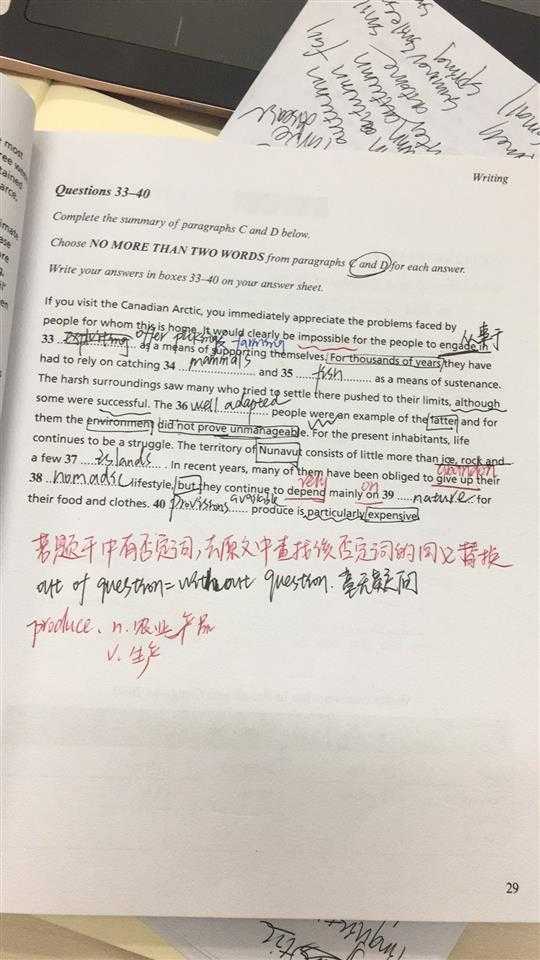 small
spring
summer
autumn
autumn
autumn fall
disease
Writing
Questions 33–40
Complete the summary of paragraphs C and D below.
Choose NO MORE THAN TWO WORDS from paragraphs C and D for each answer.
Write your answers in boxes 33–40 on your answer sheet.
If you visit the Canadian Arctic, you immediately appreciate the problems faced by
people for whom this is home. It would clearly be impossible for the people to engage in
从事于
33 farming as a means of supporting themselves. For thousands of years they have
had to rely on catching 34 mammals and 35 fish as a means of sustenance.
The harsh surroundings saw many who tried to settle there pushed to their limits, although
some were successful. The 36 well adapted people were an example of the latter and for
them the environment did not prove unmanageable. For the present inhabitants, life
continues to be a struggle. The territory of Nunavut consists of little more than ice, rock and
a few 37 islands. In recent years, many of them have been obliged to give up their
abandon
38 nomadic lifestyle, but they continue to depend mainly on 39 nature for
rely on
their food and clothes. 40 provisions available produce is particularly expensive.
若题干中有否定词,去原文中查找该否定词的同义替换
out of question = without question. 毫无疑问
produce. n. 农业产品
v. 生产
29